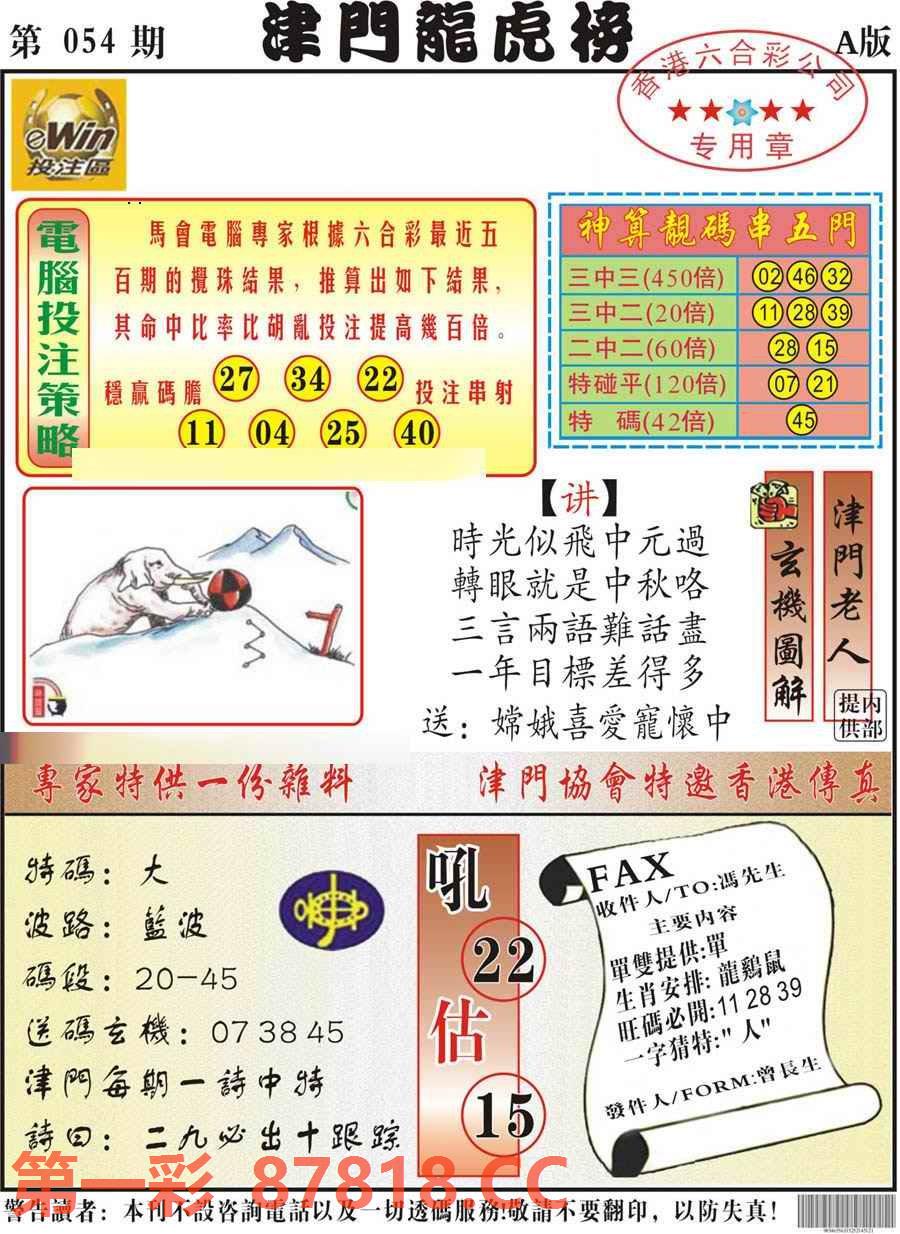 第 054 期
津門龍虎榜
A版
香港六合彩公司
专用章
eWin
投注區
電腦投注策略
馬會電腦專家根據六合彩最近五
百期的攪珠結果，推算出如下結果，
其命中比率比胡亂投注提高幾百倍。
穩贏碼膽 27 34 22 投注串射
11 04 25 40
神算靚碼串五門
三中三(450倍) 02 46 32
三中二(20倍) 11 28 39
二中二(60倍) 28 15
特碰平(120倍) 07 21
特 碼(42倍) 45
【讲】
時光似飛中元過
轉眼就是中秋咯
三言兩語難話盡
一年目標差得多
送：嫦娥喜愛寵懷中
玄機圖解
津門老人
内部提供
專家特供一份雜料
津門協會特邀香港傳真
特碼：大
波路：藍波
碼段：20-45
送碼玄機：07 38 45
津門每期一詩中特
詩曰：二九必出十跟踪
吼
22
估
15
FAX
收件人/TO:馮先生
主要内容
單雙提供:單
生肖安排:龍鷄鼠
旺碼必開:11 28 39
一字猜特:"人"
發件人/FORM:曾長生
第一彩 87818.CC
警告讀者：本刊不設咨詢電話以及一切透碼服務!敬請不要翻印，以防失真!